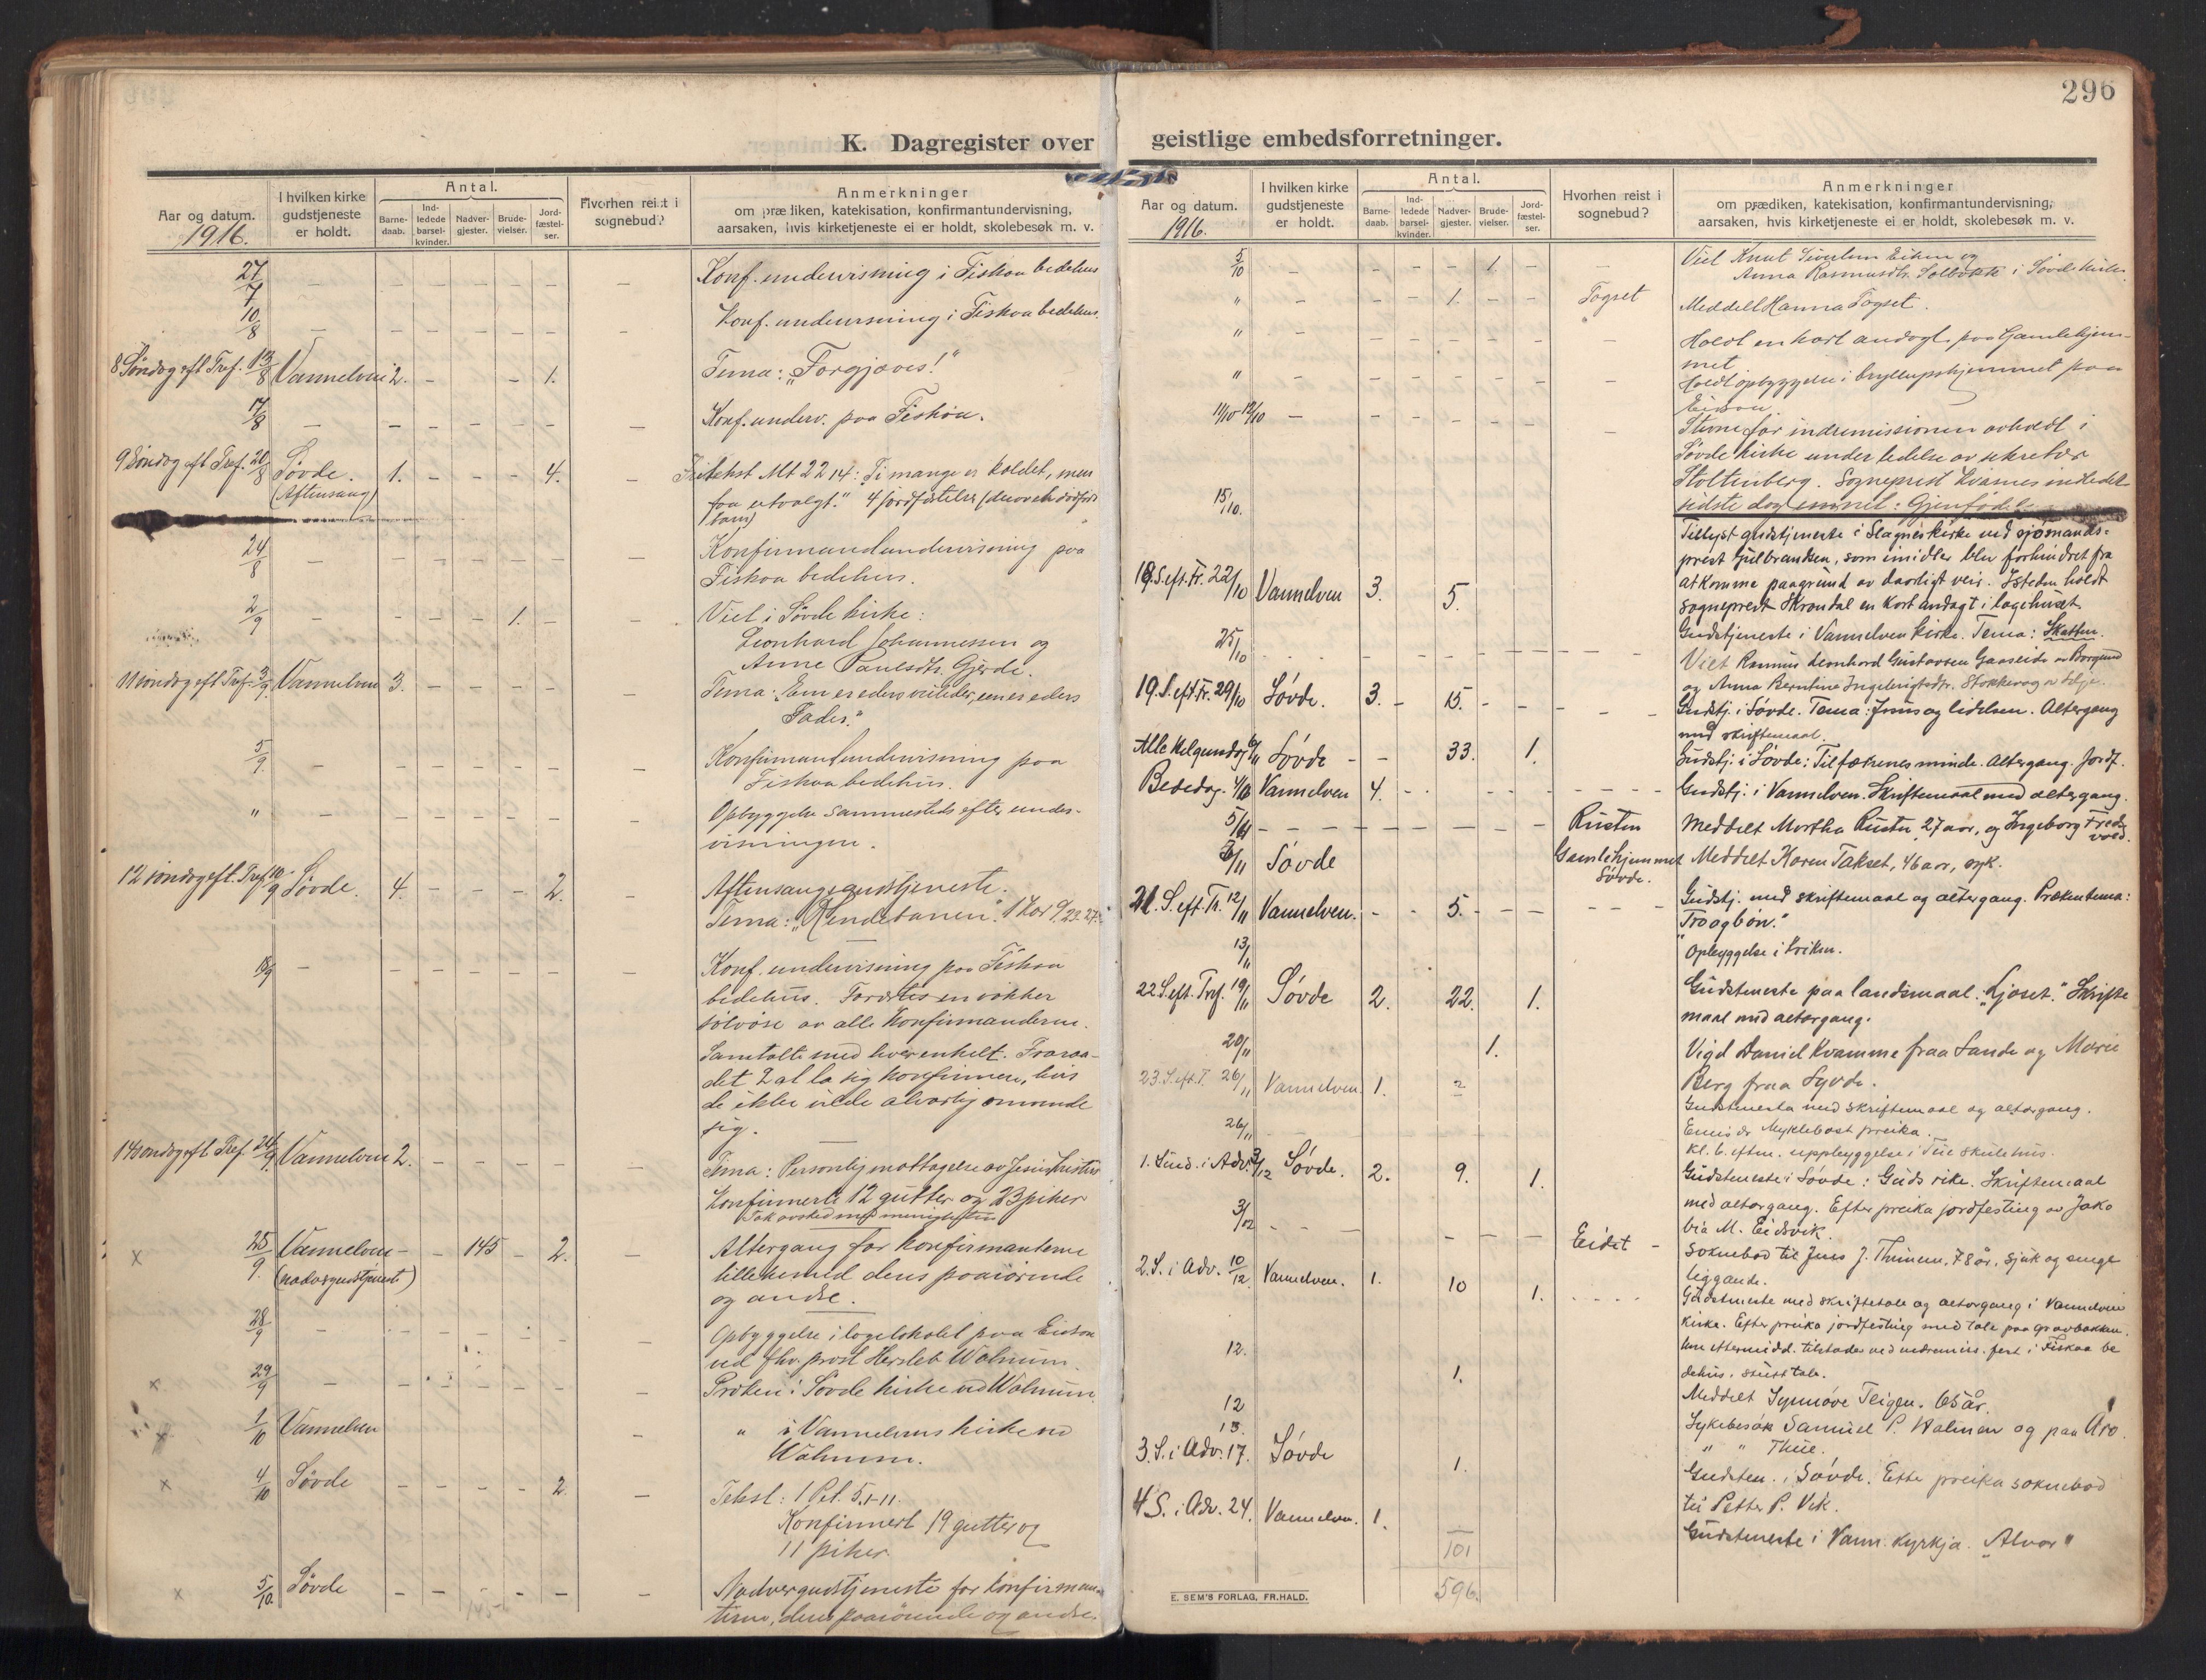 296
K. Dagregister over
geistlige embedsforretninger.
Aar og datum.
1916.
I hvilken kirke
gudstjeneste
er holdt.
Antal.
Barne-
daab.
Ind-
ledede
barsel-
kvinder.
Nadver-
gjester.
Brude-
vielser.
Jord-
fæstel-
ser.
Hvorhen reist i
sognebud?
Anmerkninger
om prædiken, katekisation, konfirmantundervisning,
aarsaken, hvis kirketjeneste ei er holdt, skolebesøk m. v.
27/7 – – – – – – – Konf. undervisning i Fiskaa bedehus
10/8 – – – – – – – Konf. undervisning i Fiskaa bedehus.
8 Søndag eft Tref. 13/8 Vannelven 2. – – 1. Tema: „Forgjæves!"
17/8 – – – – – – – Konf. underv. paa Fiskaa.
9 Søndag eft Tref. 20/8 Søvde. 1. – – – 4. – Fritekst Mt 22 14: Ti mange er kaldet, men
(Aftensang) faa utvalgt." 4 jordfæstelser
24/8 – – – – – – – Konfirmandundervisning paa
Fiskaa bedehus.
2/9 – – – – 1. – – Viet i Søvde kirke:
Leonhard Johannessen og
Anne Paulsdtr. Gjerde.
11 søndag eft Tref. 3/9 Vannelven 3. – – – – Tema: "Een er eders veileder, een er eders
Fader."
5/9 – – – – – – – Konfirmandundervisning paa
Fiskaa bedehus.
" – – – – – – – Opbyggelse sammesteds efter under-
visningen.
12 søndag eft. Tref. 10/9 Søvde. 4. – – – 2. – Aftensangsgudstjeneste.
Tema: „Rendebanen". 1 Kor 9 22-27.
– – – – – – – Konf. undervisning paa Fiskaa
bedehus. en vakker
av alle konfirmanderne.
Samtalte med hver enkelt. Fraraa-
det 2 at la sig konfirmere, hvis
de ikke vilde alvorlig omvende
sig.
14 søndag eft Tref. 24/9 Vannelven 2. – – – – – Tema: Personlig mottagelse av Jesus Kristus
Konfirmerte 12 gutter og 23 piker
Tok avsked med menigheten
x 25/9. Vannelven – – 145 – 2. – Altergang for konfirmanterne
(nadvergudstjeneste) tillikemed deres paarørende
og andre.
28/9 – – – – – – – Opbyggelse i logelokalet paa Eidsaa
ved fhv. prost Hersleb Walnum.
x 29/9 – – – – – – – Præken i Søvde kirke ved Walnum.
x 1/10 Vannelven – " i Vannelvens kirke ved
Walnum.
x 4/10 Søvde – – – – 2. – Tekst: 1 Pet. 5, 1-11.
Konfirmert 19 gutter og
11 piker.
x 5/10. Søvde – – – – – Nadvergudstjeneste for konfirman-
145 terne, deres paarørende og andre.
Aar og datum.
1916.
I hvilken kirke
gudstjeneste
er holdt.
Antal.
Barne-
daab.
Ind-
ledede
barsel-
kvinder.
Nadver-
gjester.
Brude-
vielser.
Jord-
fæstel-
ser.
Hvorhen reist i
sognebud?
Anmerkninger
om prædiken, katekisation, konfirmantundervisning,
aarsaken, hvis kirketjeneste ei er holdt, skolebesøk m. v.
5/10 – – – – 1. – – Viet Knut og
Anna Rasmusdtr. i Søvde kirke.
" – – – 1. – – Togset Meddelt Hanna Togset.
" – – – – – – – Holdt en kort andagt paa Gamlehjem-
met
" – – – – – – Holdt opbyggelse i bryllupshjemmet paa
Eidsaa.
11/10-12/10 – – – – – – – Stevne for indremissionen avholdt i
Søvde kirke under ledelse av sekretær
Stoltenberg. Sogneprest Kvasnes indledet
sidste dag emnet: Gjenfødelse.
15/10. Tillyst gudstjeneste i Slagnes kirke ved sjømands-
prest Gulbrandsen, som imidler. blev forhindret fra
at komme paagrund av daarligt veir. Isteden holdt
sogneprest Skrondal en kort andagt i logehuset.
18. S. eft. Tr. 22/10 Vannelven 3. 5. Gudstjeneste i Vannelven kirke. Tema: Skatten.
25/10 – – – – – – – Viet Rasmus Leonhard Gustavsen Gaaseide av Borgund
og Anna Berntine Ingebrigtsdtr. Stokkevag av Selje.
19. S. eft. Tr. 29/10 Søvde. 3. – 15. – – – Gudstj. i Søvde. Tema: Jesus og lidelsen. Altergang
med skriftemaal.
Alle Helgensdag Søvde – – 33. 1. Gudstj. i Søvde: Til fædrenes minde. Altergang. Jordf.
Bededag. Vannelven 4. – – – – – Gudstj. i Vannelven. Skriftemaal med altergang.
5/11 – – – – – – – Rusten Meddelt Martha Rusten, 27 aar, og Ingeborg Fredsvold.
Søvde Gamlehjemmet
Søvde. Meddelt Karen Takset, 46 aar, syk.
21. S. eft. Tr. 12/11 Vannelven. – – 5. – – – Gudstj. med skriftemaal og altergang. Prækentema:
"Tro og bøn."
13/11 Opbyggelse i kirken.
22 S. eft. Tref. 19/11 Søvde 2. 22. 1. Gudsteneste paa landsmaal. „Ljoset." Skrifte
maal med altergang.
20/11 1. Vigd Daniel Kvamme fraa Sande og Marie
Berg fraa Syvde.
23. S. eft. T. 26/11 Vannelven. 1. 2 Gudstenesta med skriftemaal og altargang.
Emisær Myklebost preika.
26/11 – – – Kl. 6. eftm. uppbyggelse i Tue skulehus.
1. Sund. i Adv. 3/12 Søvde. 2. 9. 1. Gudsteneste i Søvde: Guds rike. Skriftemaal
med altargang. Efter preika jordfesting av Jako
bia M. Eidsvik.
3/12 – – – – – – Eidet – Soknebod til Jens J. Thunem, 78 år, sjuk og senge
liggande.
2. S. i Adv. 10/12 Vannelven. 1. 10 1. Gudsteneste med skriftetale og altargang i Vannelven
kirke. Efter preika jordfesting med tale paa gravbakken.
Um eftermidd. tilstades ved indremis. fest i Fiskaa be
dehus. stutt tale.
12. 1. Meddelt Synnøve Teigen. 65 år.
12 Sykebesøk Samuel P. Walmen og paa Aro.
13. " " Thue.
3. S. i Adv. 17. Søvde 1. Gudsten. i Søvde. Ette preika soknebod
til Petter P. Vik.
4 S. i Adv. 24. Vannelven. 1. Gudsteneste i Vann. kyrkja. „Alvor"
101
596.
E. SEM'S FORLAG, FR.HALD.